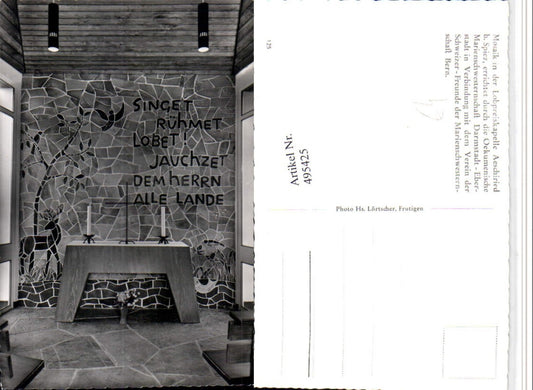 SINGET
RÜHMET
LOBET!
JAUCHZET
DEM HERRN
ALLE LANDE
125
Mosaik in der Lobpreiskapelle Aeschiried
b. Spiez, errichtet durch die Oekumenische
Marienschwesternschaft Darmstadt-Eber-
stadt in Verbindung mit dem Verein der
Schweizer-Freunde der Marienschwestern-
schaft Bern.
Artikel Nr.
495425
Photo Hs. Lörtscher, Frutigen